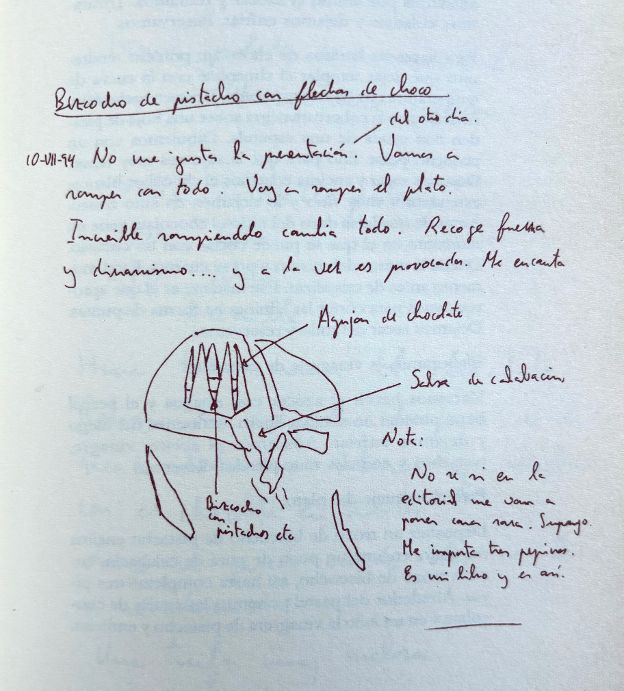 Bizcocho de pistacho con flechas de choco
del otro dia.
10-VII-94 No me gusta la presentación. Vamos a
romper con todo. Voy a romper el plato.
Increible rompiendolo cambia todo. Recoge fuerza
y dinamismo.... y a la vez es provocador. Me encanta
Agujon de chocolate
Salsa de calabacines
Bizcocho
con
pistachos etc
Nota:
No se si en la
editorial me van a
poner cara rara. Supongo.
Me importa tres pepinos.
Es mi libro y es así.